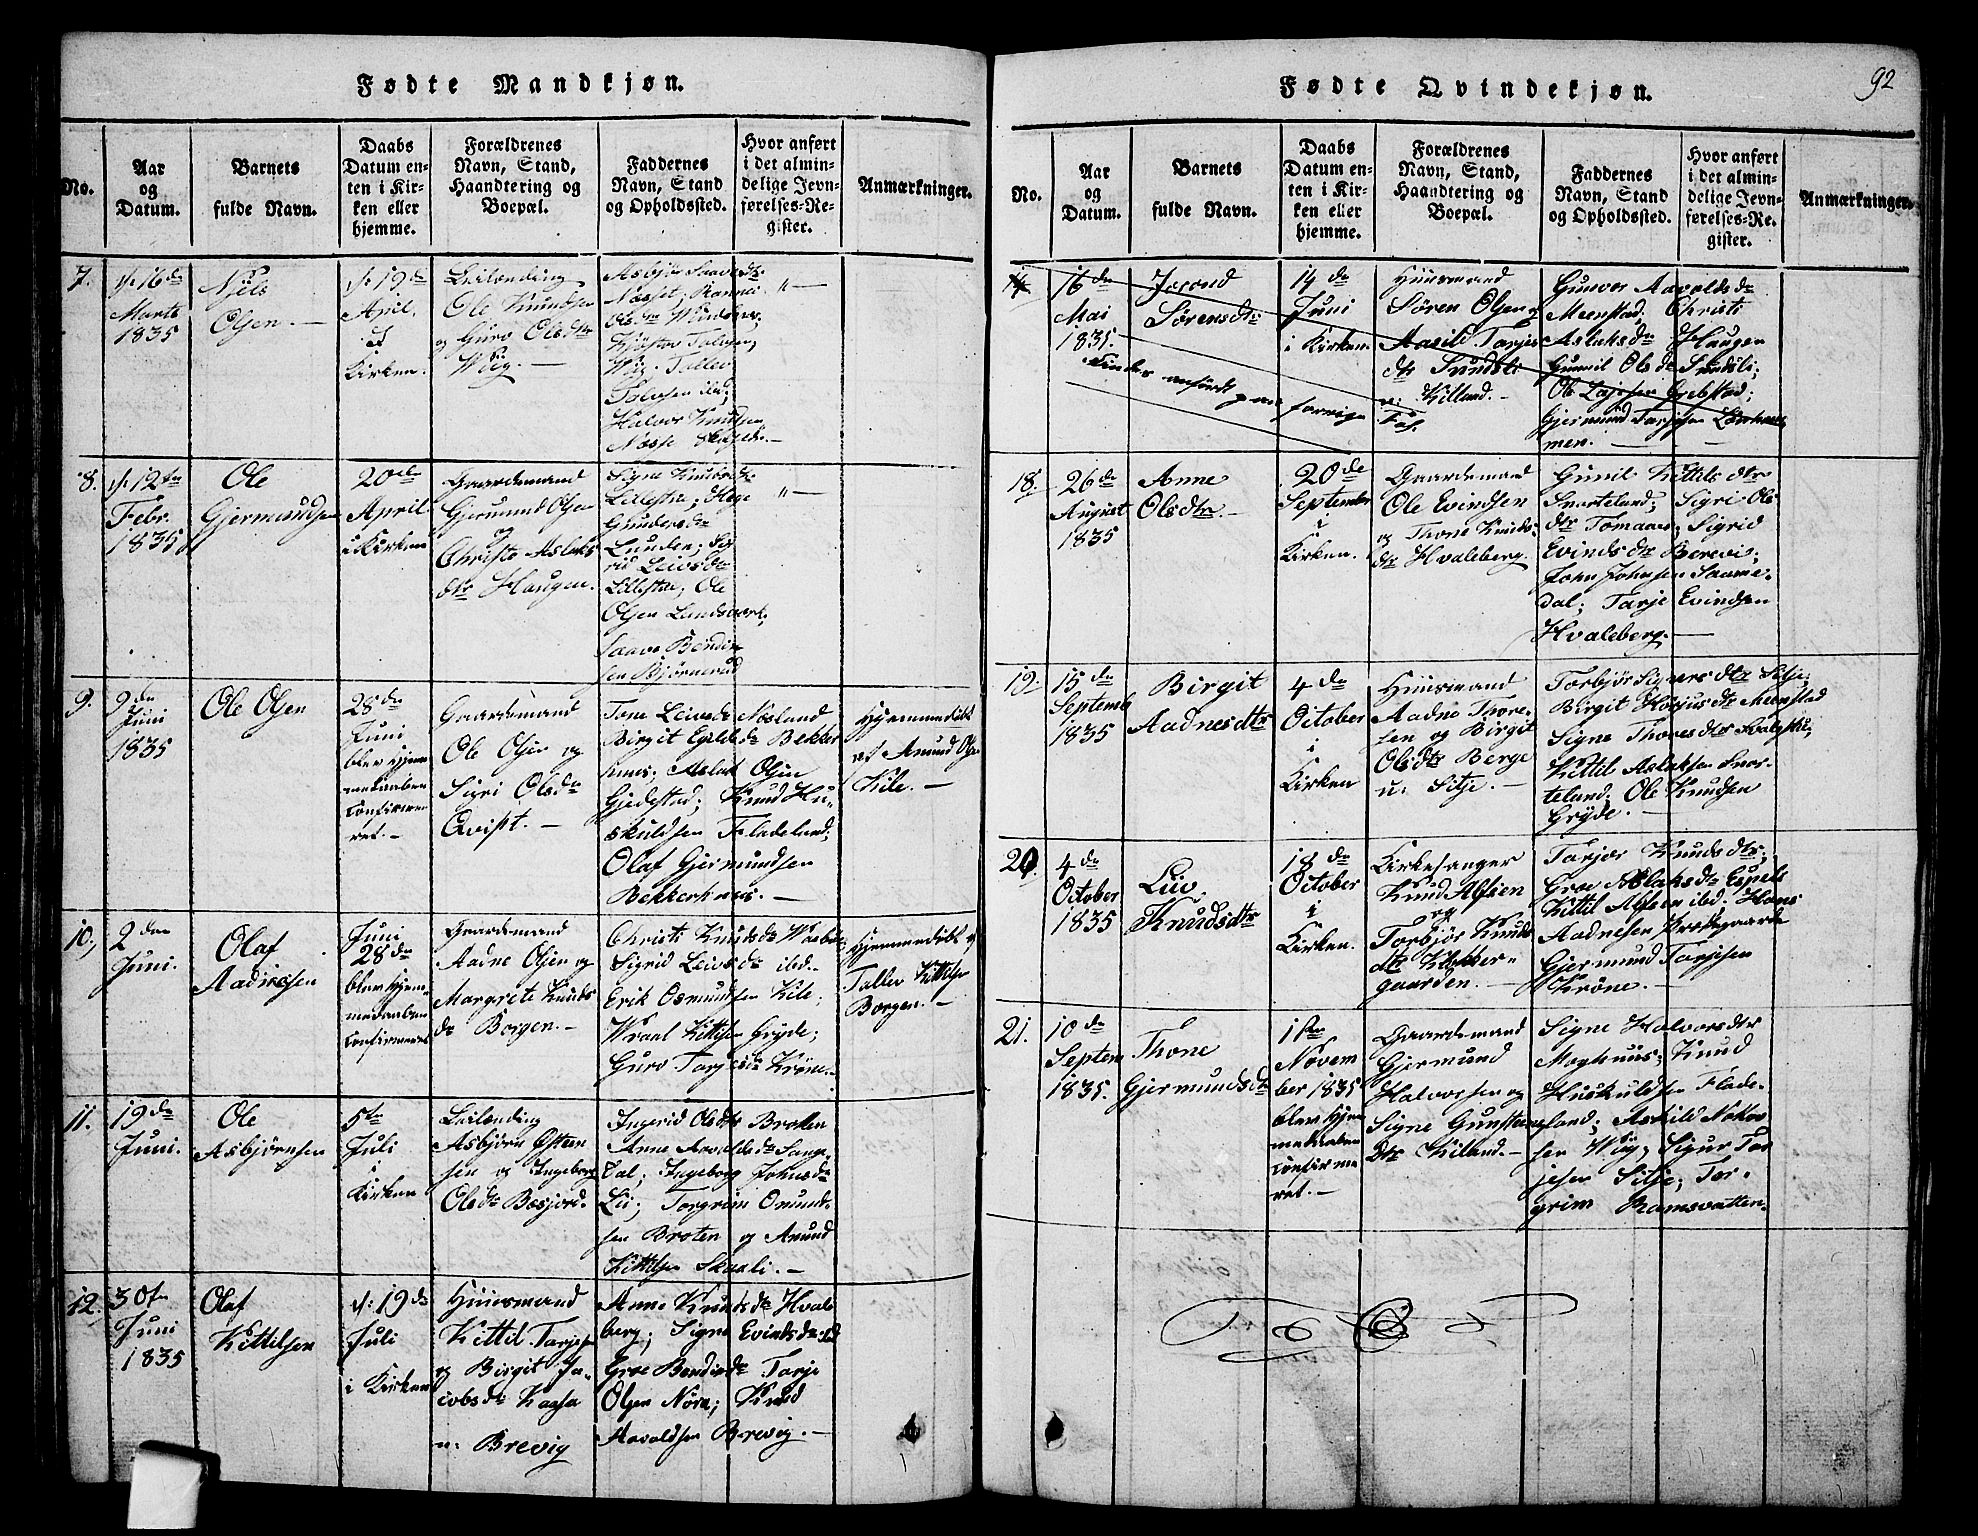 Fødte Mandkjøn.
No.
Aar
og
Datum.
Barnets
fulde Navn.
Daabs
Datum en-
ten i Kir-
ken eller
hjemme.
Forældrenes
Navn, Stand,
Haandtering og
Boepæl.
Faddernes
Navn, Stand
og Opholdssted.
Hvor anført
i det almin-
delige Jevn-
førelses-Re-
gister.
Anmærkninger.
7.
16de
Marts
1835
Niels
Olsen.
19de
April
i
Kirken.
Leilænding
Ole Knudsen
og Guro Olsdtr
Wiig.
8.
12te
Febr.
1835
Ole
Gjermundsen
20de
April
i Kirken
Gaardemand
Gjermund Olsen
og
Christi Aslaks
dtr Haugen.
Signe Knudsdtr
Lillestø; Hege
Gundersdtr
Lunden;
Lillestø; Ole
Olsen Landsverk,
Saave Bendix
sen Bjørnerud
9.
9de
Juni
1835
Ole Olsen
28de
Juni
blev hjem-
medaaben
confirme-
ret.
Gaardemand
Ole Olsen og
Sigri Olsdtr
Qvist.
Tone Leivsdtr Nøsland
Birgit Egildsdtr Bekker
huus; Aslak Olsen
Gjedestad; Knud Hu-
skuldsen Fladeland;
Olaf Gjermundsen
Bekkerhuus.
Hjemmedøbt
af Amund Ols
Kile.
10.
2den
Juni.
Olaf
Aadnesen
Juni
28de
blev hjem-
medaaben
confirmeret
Gaardemand
Aadne Olsen og
Margrete Knuds
dtr Borgen.
Christi Knudsdtr
Sigrid Leivsdtr ibd.
Erik Osmundsen Kile;
Wraal Kittilsen Gryde;
Guro Tarjesdtr Krone.
Hjemmedøbt af
Tallev Kittilsen
Borgen.
11.
19de
Juni.
Ole
Asbjørnsen
5te
Juli
i
Kirken
Leilænding
Asbjørn Østen
sen og Ingeborg
Olsdtr Bøsjord.
Ingerid Olsdtr Broten
Anne Aavoldsdtr Lange-
dal; Ingeborg Johnsdtr
Lii; Torgrim Omund-
sen Broten og Amund
Kittilsen Skaali.
12.
30te
Juni
1835
Olaf
Kittilsen
19de
Juli
i Kirken
Huusmand
Kittil Tarjesen
og Birgit Ja-
cobsdtr Kaasa
u. Brevig
Anne Knudsdtr Hvale
berg; Signe Evindsdtr ibd
Groe Bendixdtr Tarje
Olsen Nøra; Knud
Aavoldsen Brevig.
92
Fødte Qvindekjøn.
No.
Aar
og
Datum.
Barnets
fulde Navn.
Daabs
Datum en-
ten i Kir-
ken eller
hjemme.
Forældrenes
Navn, Stand,
Haandtering og
Boepæl.
Faddernes
Navn, Stand
og Opholdssted.
Hvor anført
i det almin-
delige Jevn-
førelses-Re-
gister.
Anmærkninger.
16de
Mai
1835.
Jorond
Sørensdtr
14de
Juni
i Kirken
Huusmand
Søren Olsen og
Aasild Tarjes-
dtr Sundsli
u. Killand.
Gunvor Aavoldsdtr
Meenstad; Christi
Aslaksdtr Haugen
Gunnil Olsdtr Sundsli;
Gjermund Tarjesen
findes anført paa forrige
Fol.
18.
26de
August
1835
Anne
Olsdtr.
20de
September
i
Kirken.
Gaardemand
Ole Evindsen
og Thone Knuds-
dtr Hvaleberg.
Gunil Kittilsdtr
Snarteland; Sigri Ols
dtr Tomaas; Sigrid
Evindsdtr Berevig;
John Johnsen Saame-
dal; Tarje Evindsen
Hvaleberg.
19.
15de
Septemb
1835
Birgit
Aadnesdtr
4de
October
i
Kirken
Huusmand
Aadne Thore-
sen og Birgit
Olsdtr Berge
u. Sitje.
Torbjør Sigursdtr Sitje
Birgit Holjusdtr Meenstad
Signe Thoresdtr
Kittil Aslaksen Snar-
teland; Ole Knudsen
Gryde.
20.
4de
October
1835
Liiv
Knudsdtr
18de
October
i
Kirken.
Kirkesanger
Knud Alfsen
og
Torbjør Knuds
dtr Klokker-
gaarden.
Tarjer Knudsdtr;
Groe Aslaksdtr Espeli
Kittil Alfsen ibd. Hans
Aadnesen Prestegaarde
Gjermund Tarjesen
Krone.
21.
10de
Septem
1835.
Thone
Gjermundsdtr
1ste
Novem
ber 1835
blev hjem
medaaben
confirme
ret.
Gaardemand
Gjermund
Halvorsen og
Signe Gunsteins
dtr Killand.
Signe Halvorsdtr
Moghuus; Knud
Huskuldsen Flade-
land; Askild
sen Wiig; Sigur Tor
jesen Sitje; Tor-
grim Ramsvatten.